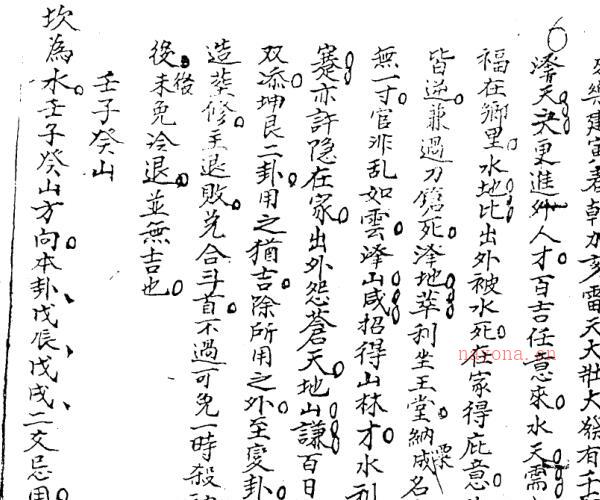 來樂建寅者乾加多雷天大壯大發有
澤天夬更進外人才百吉任意來水天需
福在鄉里水地比出外被水死在家得庇意
皆逆兼遇刀鎗死澤地萃利坐王堂納成名
無一寸官非乱如雲澤山咸招得山林才水
蹇亦許隐在家出外怨蒼天地山謙百日
双添坤艮二卦用之猶吉除所用之外至变卦
造葬修主退敗兑合斗首不過可免一時殺
後未免冷退並無吉也
後
壬子癸山
坎為水壬子癸山方向本卦戊辰戊戌二爻忌用
nayona.cn